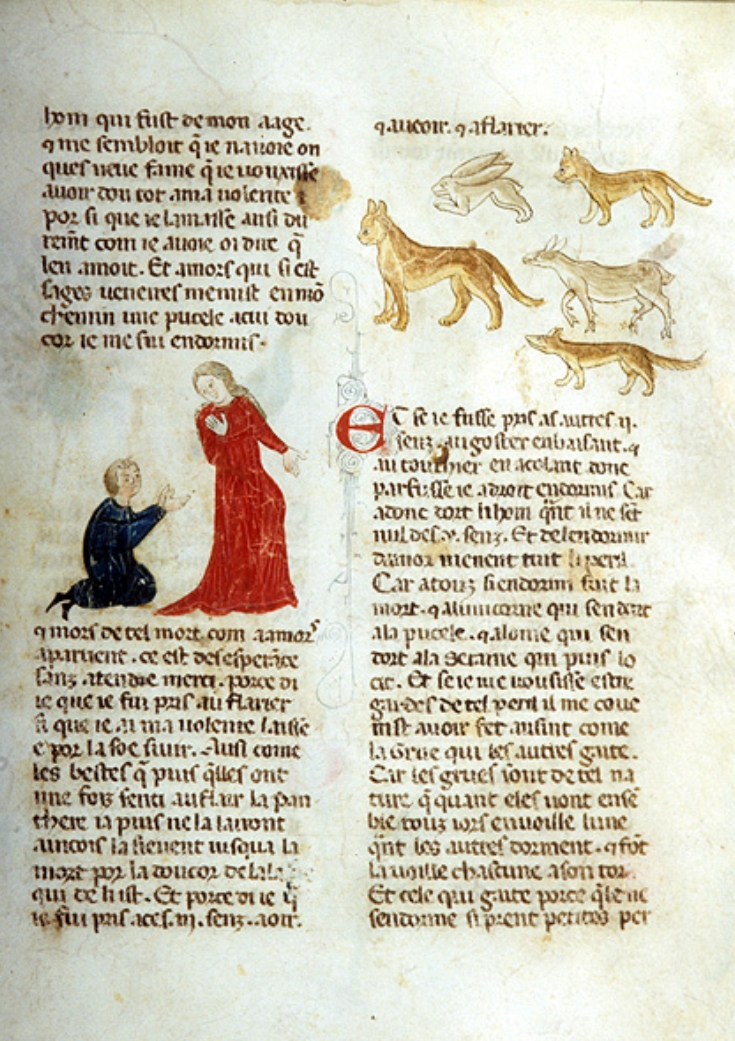 hom qui fust de mon aage.
⁊ me sembloit q̃ ie nauoie on
ques ueue fame q̃ ie uousisse
auoir dou tot a ma uolente
por si que ie lamasse ausi du
remt com ie auoie oi dire q̃
len amoit. Et amors qui si est
sages ueneres me mist en mõ
chemin une pucele a cui dou
cor ie me sui endormis.
⁊ mors de tel mort com a amors
apartient. ce est desesperãce
sanz atendre merci. porce di
ie que ie fui pris au flairier
si que ie ai ma uolente laissie
e por la soe siuir. Ausi come
les bestes q̃ puis q̃les ont
une fois senti au flair la pan
there ia puis ne la lairont
aincois la sieuent iusqua la
mort por la doucor de lala
qui de li ist. Et porce di ie q̃
ie fui pris a ces .iii. senz. a oir.
⁊ a ueoir. ⁊ a flairier.
Et se ie fusse pris as autres .ii.
senz. au goster en baisant. ⁊
au touchier en acolant donc
parfusse ie a droit endormis. Car
adonc dort li hom q̃nt il ne set
nul des .v. senz. Et del endormir
damor uienent tuit li peril.
Car a touz si endormi suit la
mort. ⁊ a lunicorne qui sendort
a la pucele. ⁊ a lome qui sen
dort a la Seraine qui puis lo
cit. Et se ie me uousisse estre
gardes de tel peril il me coue
nist auoir fet ausint come
la Grue qui les autres gaite.
Car les grues sont de tel na
ture q̃ quant eles uont ense
ble touz iors en uoille lune
q̃nt les autres dorment. ⁊ fõt
la uoille chascune a son tor.
Et cele qui gaite porce q̃le ne
sendorme si prent petites per